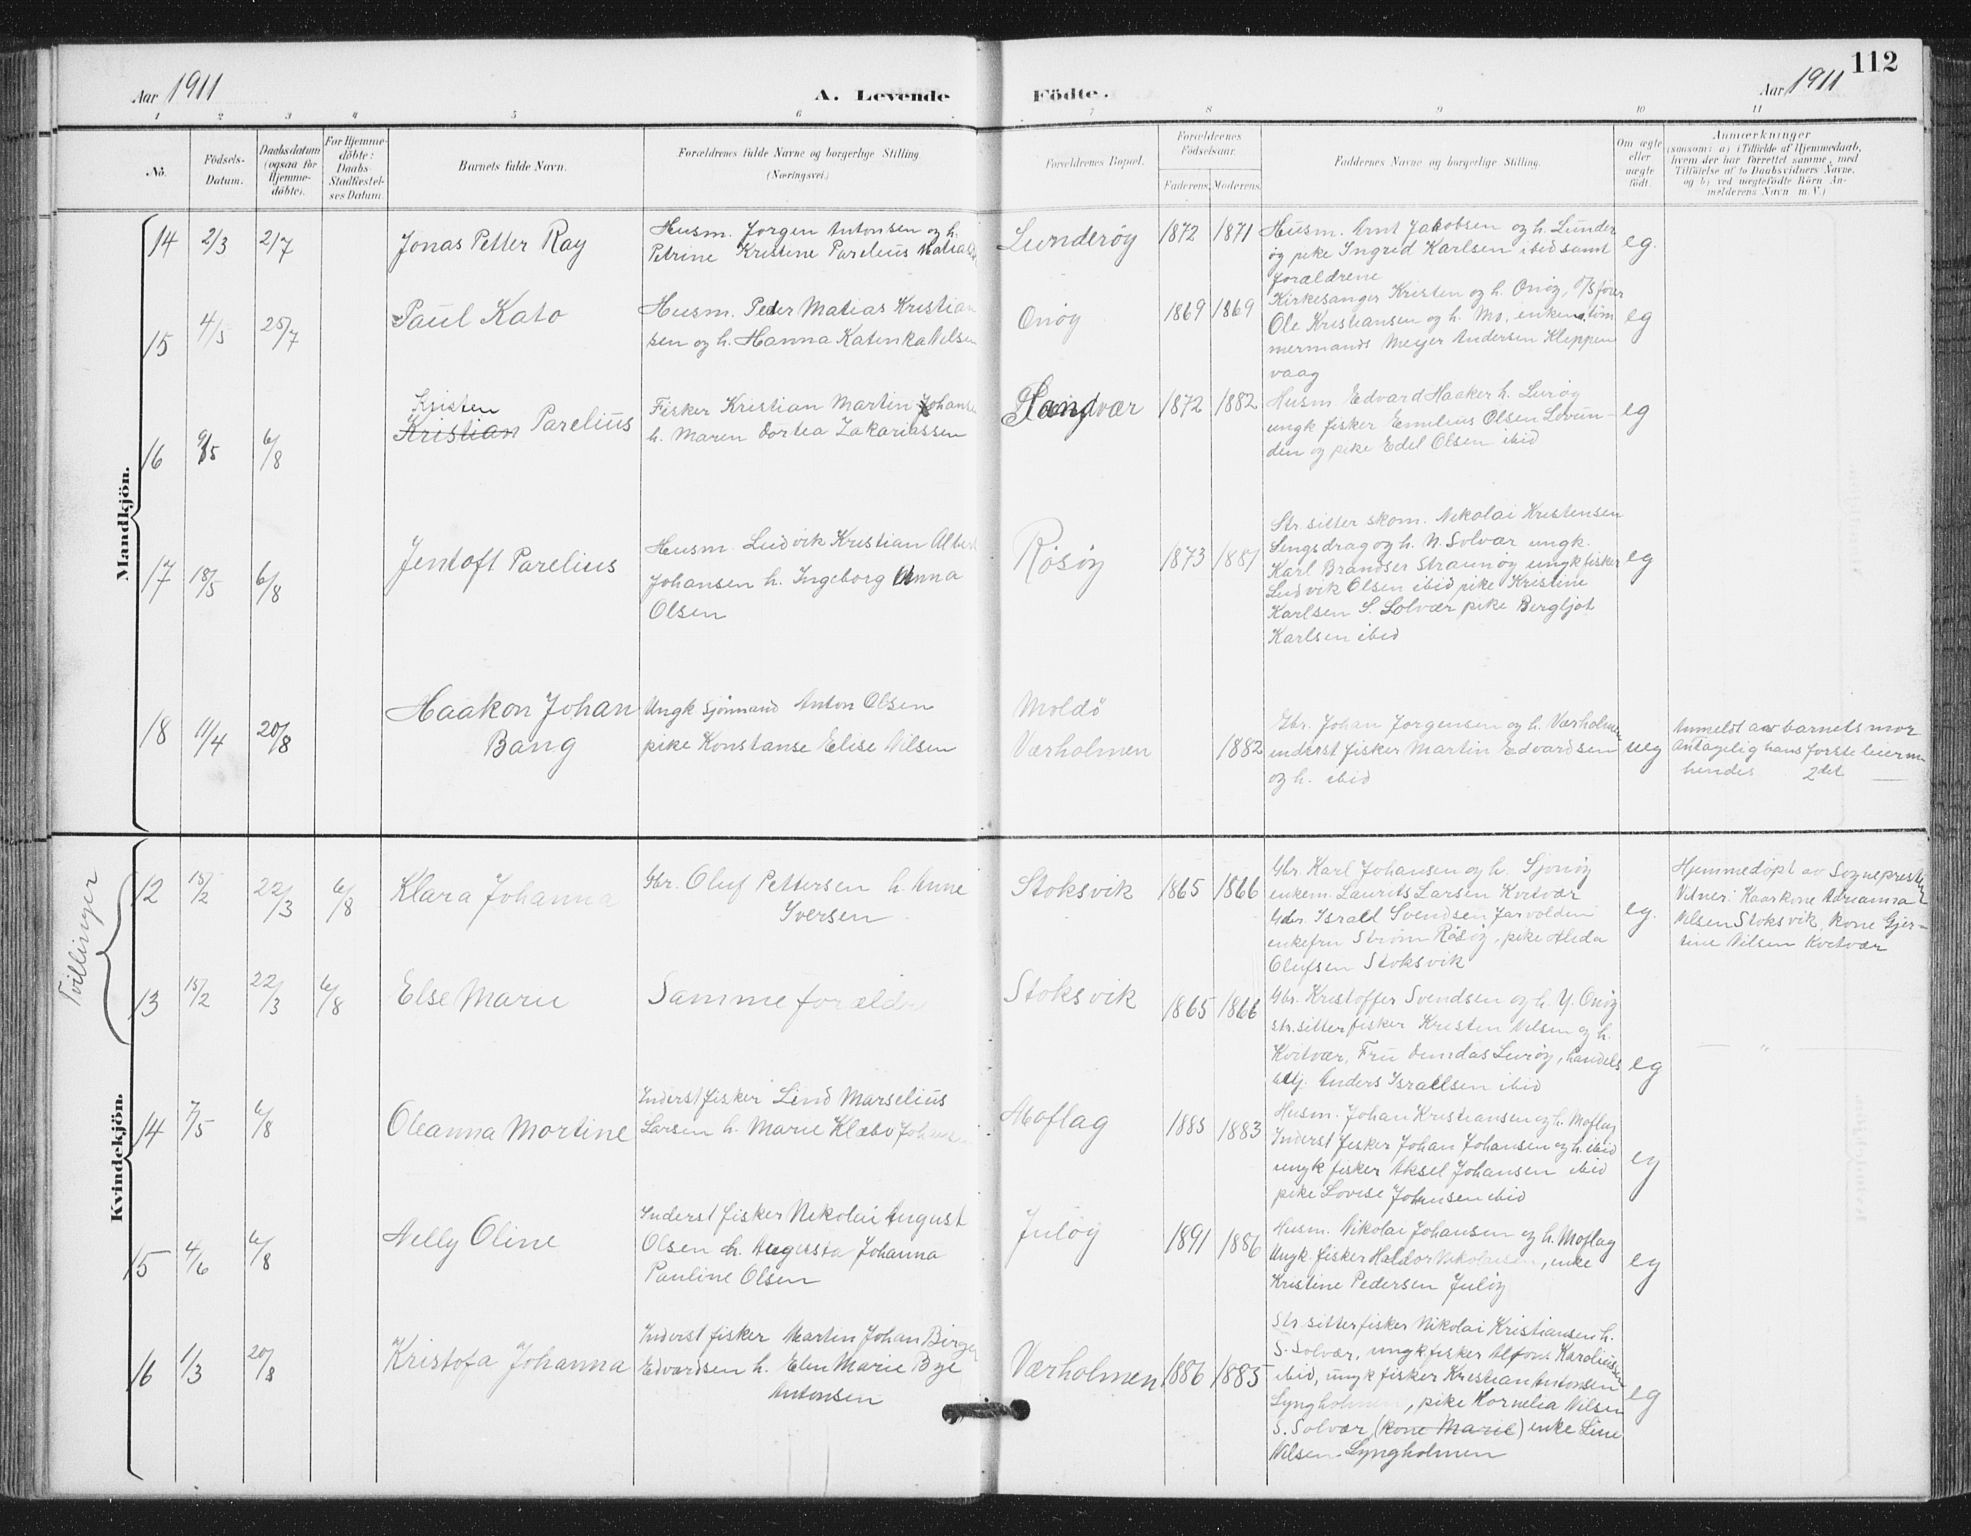 Aar 1911
A. Levende Födte.
Aar 1911
112
1 2 3 4 5 6 7 8 9 10 11
No.
Födsels-
Datum.
Daabsdatum
(ogsaa for
Hjemme-
döbte).
For Hjemme-
döbte:
Daabs-
Stadfæstel-
ses Datum.
Barnets fulde Navn.
Forældrenes fulde Navne og borgerlige Stilling
(Næringsvei.)
Forældrenes Bopæl.
Forældrenes
Födselsaar.
Faderens. Moderens.
Faddernes Navne og borgerlige Stilling.
Om ægte
eller
uægte
födt.
Anmærkninger
(saasom: a) i Tilfælde af Hjemmedaab,
hvem der har forrettet samme, med
Tilföielse af to Daabsvidners Navne,
og b) ved uægtefödte Börn An-
melderens Navn m. V.)
Mandkjön.
14 2/3 2/7
Jonas Petter Ray
Husm. Jorgen Antonsen og h.
Petrine Kristine Parelius
Lunderøy
1872 1871
Husm. Arnt Jakobsen og h. Lunder
øy pike Ingrid Karlsen ibid samt
forældrene
eg.
15 4/5 25/7
Paul Kato
Husm. Peder Matias Kristian
sen og h. Hanna Katenka Nilsen
Onøy
1869 1869
Kirkesanger Kristen og h. Onøy,
Ole Kristiansen og h. Mo, enkem. töm
mermands Meyer Andersen Kleppen
vaag
eg
16 9/5 6/8
Kristen
Kristian Parelius
Fisker Kristian Martin Johans
h. Maren Dortea Zakariassen
Sandvær
1872 1882
Husm Edvard Haaker h. Lurøy
ungk fisker Emilius Olsen Lovun-
den og pike Edel Olsen ibid
eg
17 18/5 6/8
Jentoft Parelius
Husm. Ludvik Kristian Albert
Johansen h. Ingeborg Anna
Olsen
Røsøy
1873 1881
Str. sitter skom. Nikolai Kristensen
Sengsdrag og h. N. Solvær ungk.
Karl Brandser Straumøy ungk fisker
Ludvik Olsen ibid pike Kristine
Karlsen S. Solvær pike Bergljot
Karlsen ibid
eg
18 11/4 20/8
Haakon Johan
Bang
Ungk sjömand Anton Olsen
pike Konstanse Elise Nilsen
Moldö
Værholmen
1882
Gbr. Johan Jorgensen og h. Værholmen
inderst fisker Martin Edvardsen
og h. ibid
ueg
Anmeldt av barnets mor
Antagelig hans forste leierm
hendes 2det —
Kvindekjön.
Tvillinger
12 15/2 22/3 6/8
Klara Johanna
Gbr. Oluf Pettersen h. Anne
Iversen
Stoksvik
1865 1866
Gbr. Karl Johansen og h. Sjonøy
enkem. Laurits Larsen Kvitvær
Gbr. Israel Svendsen Jarvolden
enkefru Strøm Røsöy, pike Alida
Olufsen Stoksvik
eg.
Hjemmedöpt av Sogneprest
Vitner: Kaarkone Adrianna
Nilsen Stoksvik kone Gjer-
tine Nilsen Kvitvær
13 15/2 22/3 6/8
Else Marie
Samme forældr
Stoksvik
1865 1866
Gbr. Kristoffer Svendsen og h. Y. Onöy
str.sitter fisker Kristen Nilsen og h.
Kvitvær, Fru Dundas Lurøy, handels
betj. Anders Israelsen ibid
eg
— „ —
14 7/5 6/8
Oleanna Mortine
Inderst fisker Lind Marselius
Larsen h. Marie Klæbo Johans
Moflag
1885 1883
Husm. Johan Kristiansen og h. Moflag
Inderst fisker Johan Johansen og h. ibid
ungk fisker Aksel Johansen ibid
pike Lovise Johansen ibid
eg
15 4/6 6/8
Nelly Oline
Inderst fisker Nikolai August
Olsen h. Augusta Johanna
Pauline Olsen
Juløy
1891 1886
Husm. Nikolai Johansen og h. Moflag
Ungk. fisker Haldor Nikolaisen, enke
Kristine Pedersen Juløy
eg
16 1/3 20/8
Kristofa Johanna
Inderst fisker Martin Johan Birger
Edvardsen h. Elen Marie Bye
Antonsen
Værholmen
1886 1885
Str. sitter fisker Nikolai Kristiansen h.
S. Solvær, ungk fisker Alfons Karoliussen
ibid, ungk fisker Kristian Antonsen
Lyngholmen, pike Kornelia Nilsen
S. Solvær (kone Marie) enke Line
Nilsen Lyngholmen
eg